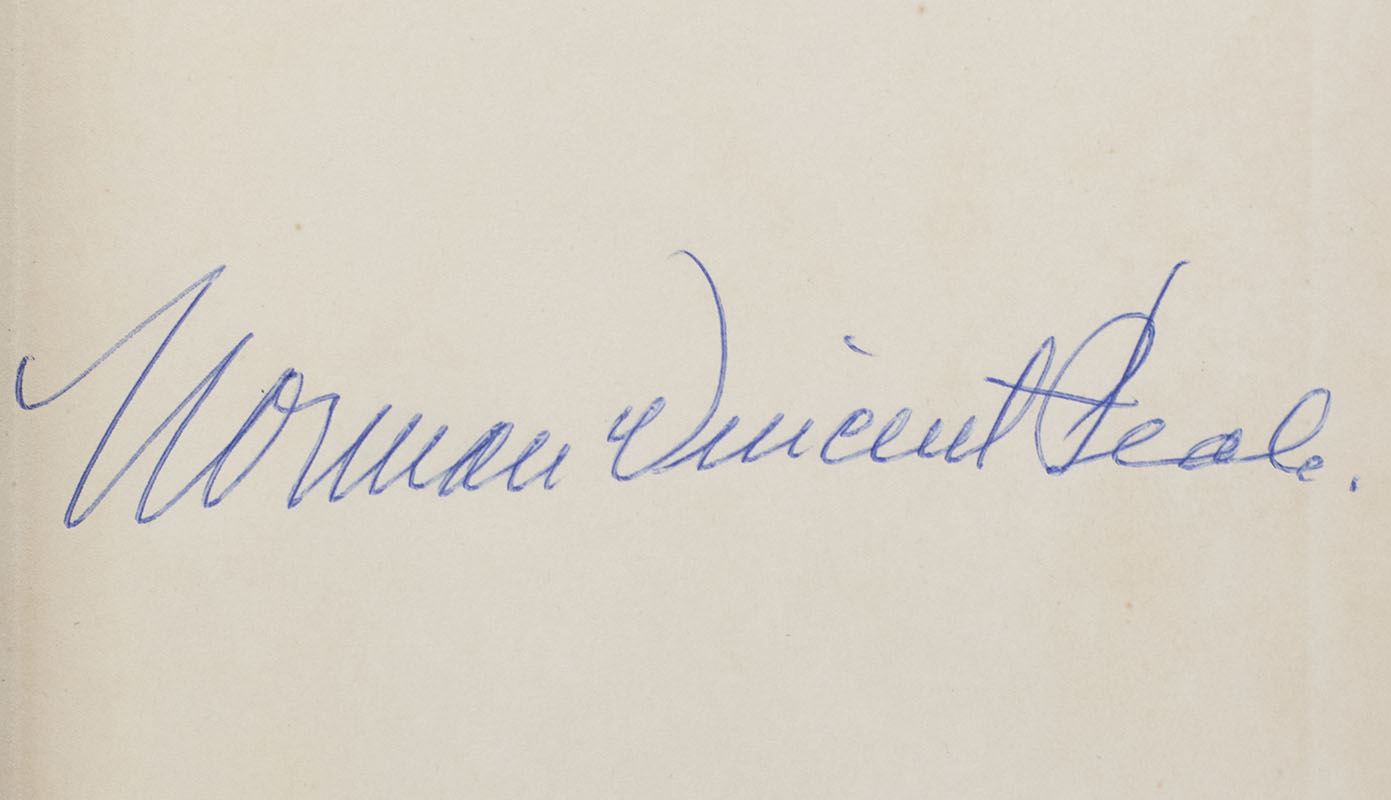 Norman Vincent Peale.